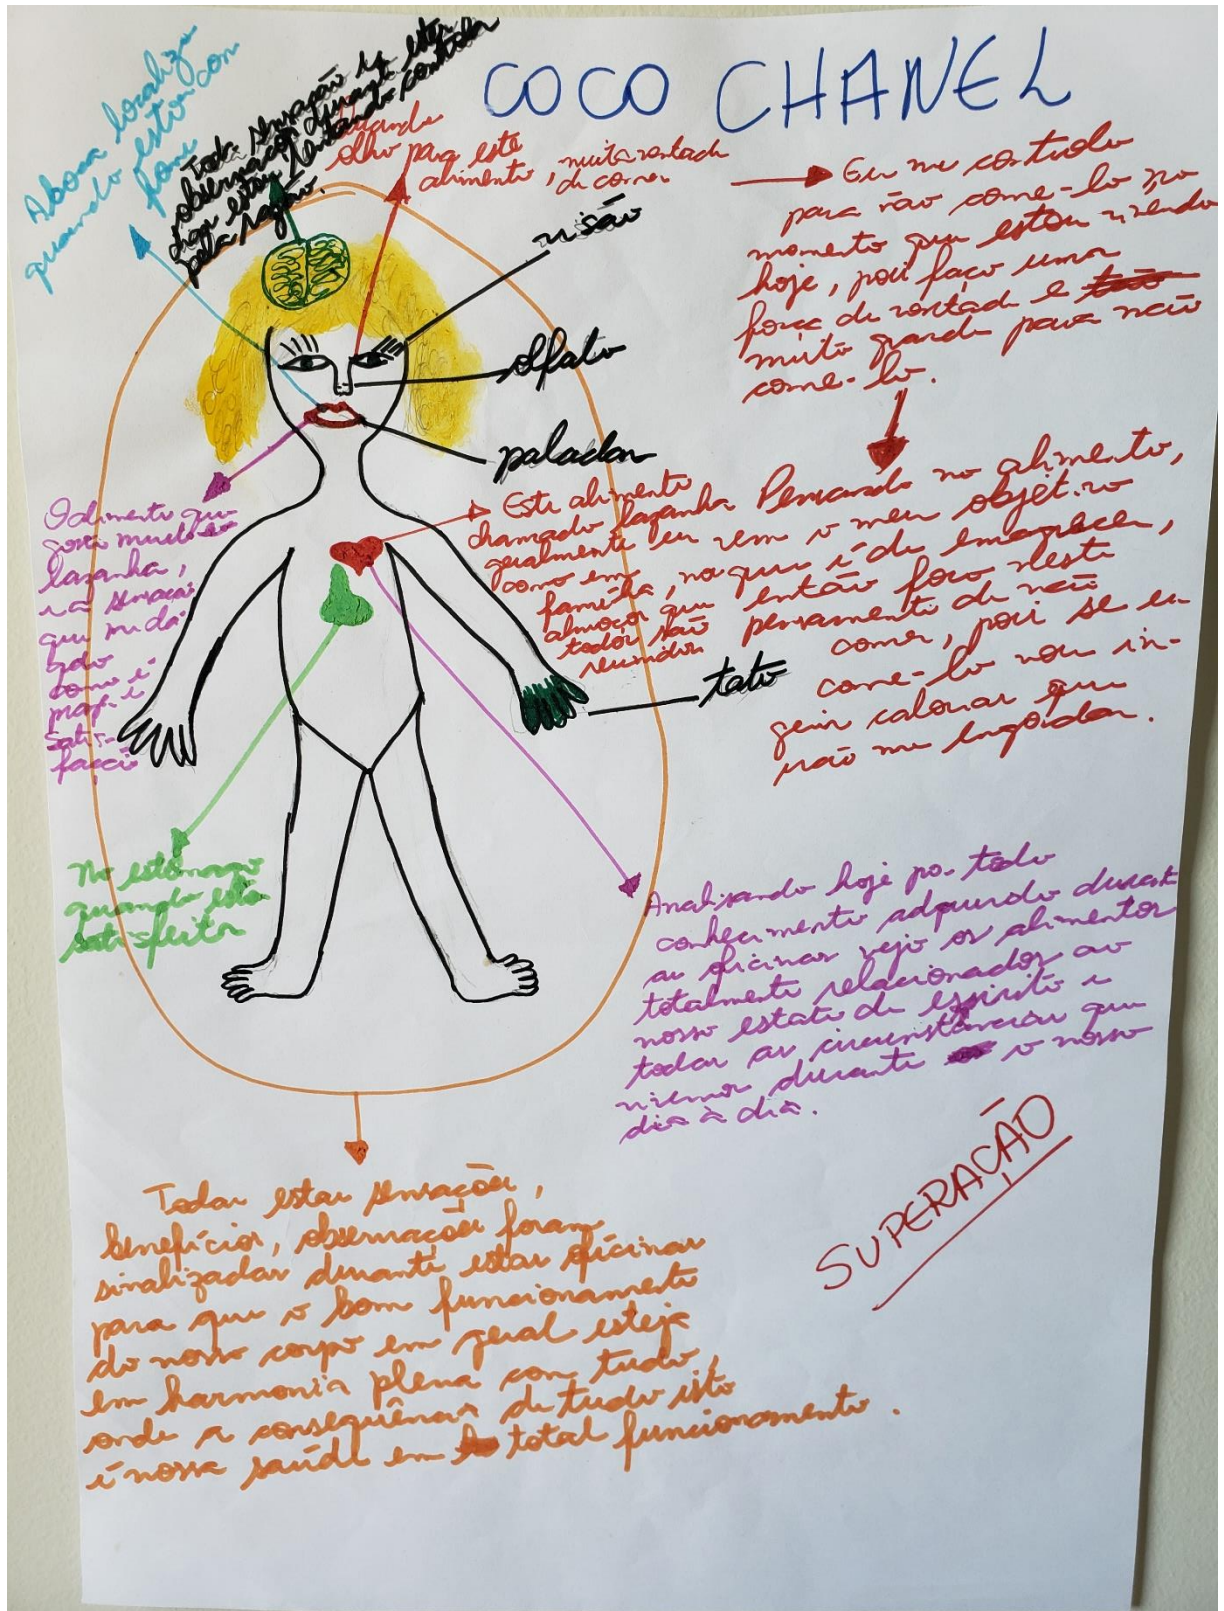 COCO CHANEL
A boca localiza
quando estou con
fome
Toda sensação e
observação durante
hoje estou tentando controlar
pela razão.
Quando
olho para este
alimento, muita vontade
de comer
Eu me controlo
para não come-lo, no
momento que estou vivendo
hoje, pois faço uma
força de vontade e
muito grande para não
come-lo.
visão
olfato
paladar
tato
Este alimento
chamado lazanha
geralmente eu
como em
família, no
almoços que
todos são
reunidos
Pensando no alimento,
vem o meu objetivo
que é de emagrecer,
então foco neste
pensamento de não
comer, pois se eu
come-lo vou in-
gerir calorias que
irão me engordar.
O alimento que
gosto muito é
lazanha,
e a sensação
que me dá
qdo
como é
praze e
satis-
facció
No estômago
quando está
satisfeita
Analisando hoje po. todo
conhecimento adquirdo durant
as oficinas vejo os alimentos
totalmente relacionados ao
nosso estato de espirito e
todas as circunstâncias que
vivemos durante o nosso
dia à dia.
SUPERAÇÃO
Todas estas sensações,
benefícios, observações foram
sinalizadas durante estas oficinas
para que o bom funcionamento
do nosso corpo em geral esteja
em harmonia plena com tudo,
onde a consequência de tudo isto
é nossa saúde em total funcionamento.